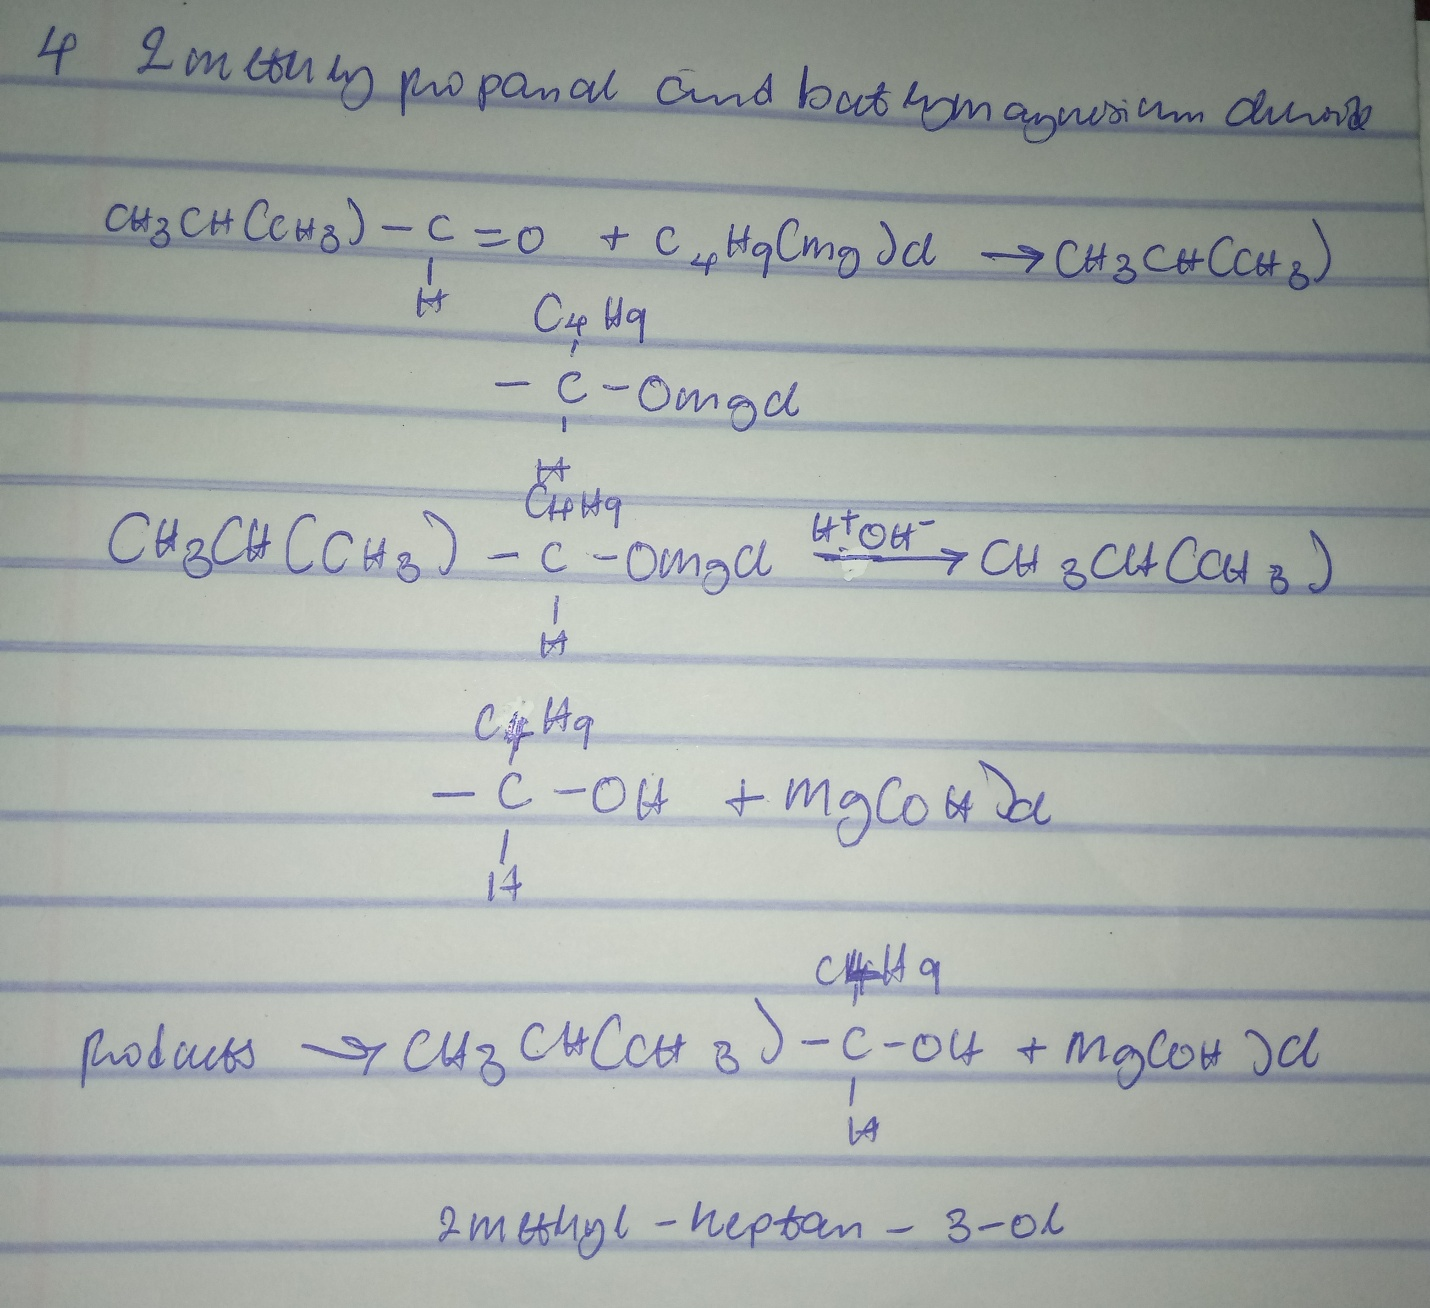 4 2methyl propanal and butylmagnesium chloride
CH3CH(CH3) - C = O + C4H9(mg)cl → CH3CH(CH3)
|
H
C4H9
|
- C - Omgcl
|
H
C4H9
CH3CH(CH3) - C - Omgcl H+OH- → CH3CH(CH3)
|
H
C4H9
|
- C - OH + Mg(OH)cl
|
H
C4H9
|
Products → CH3CH(CH3) - C - OH + Mg(OH)cl
|
H
2methyl - heptan - 3 - ol